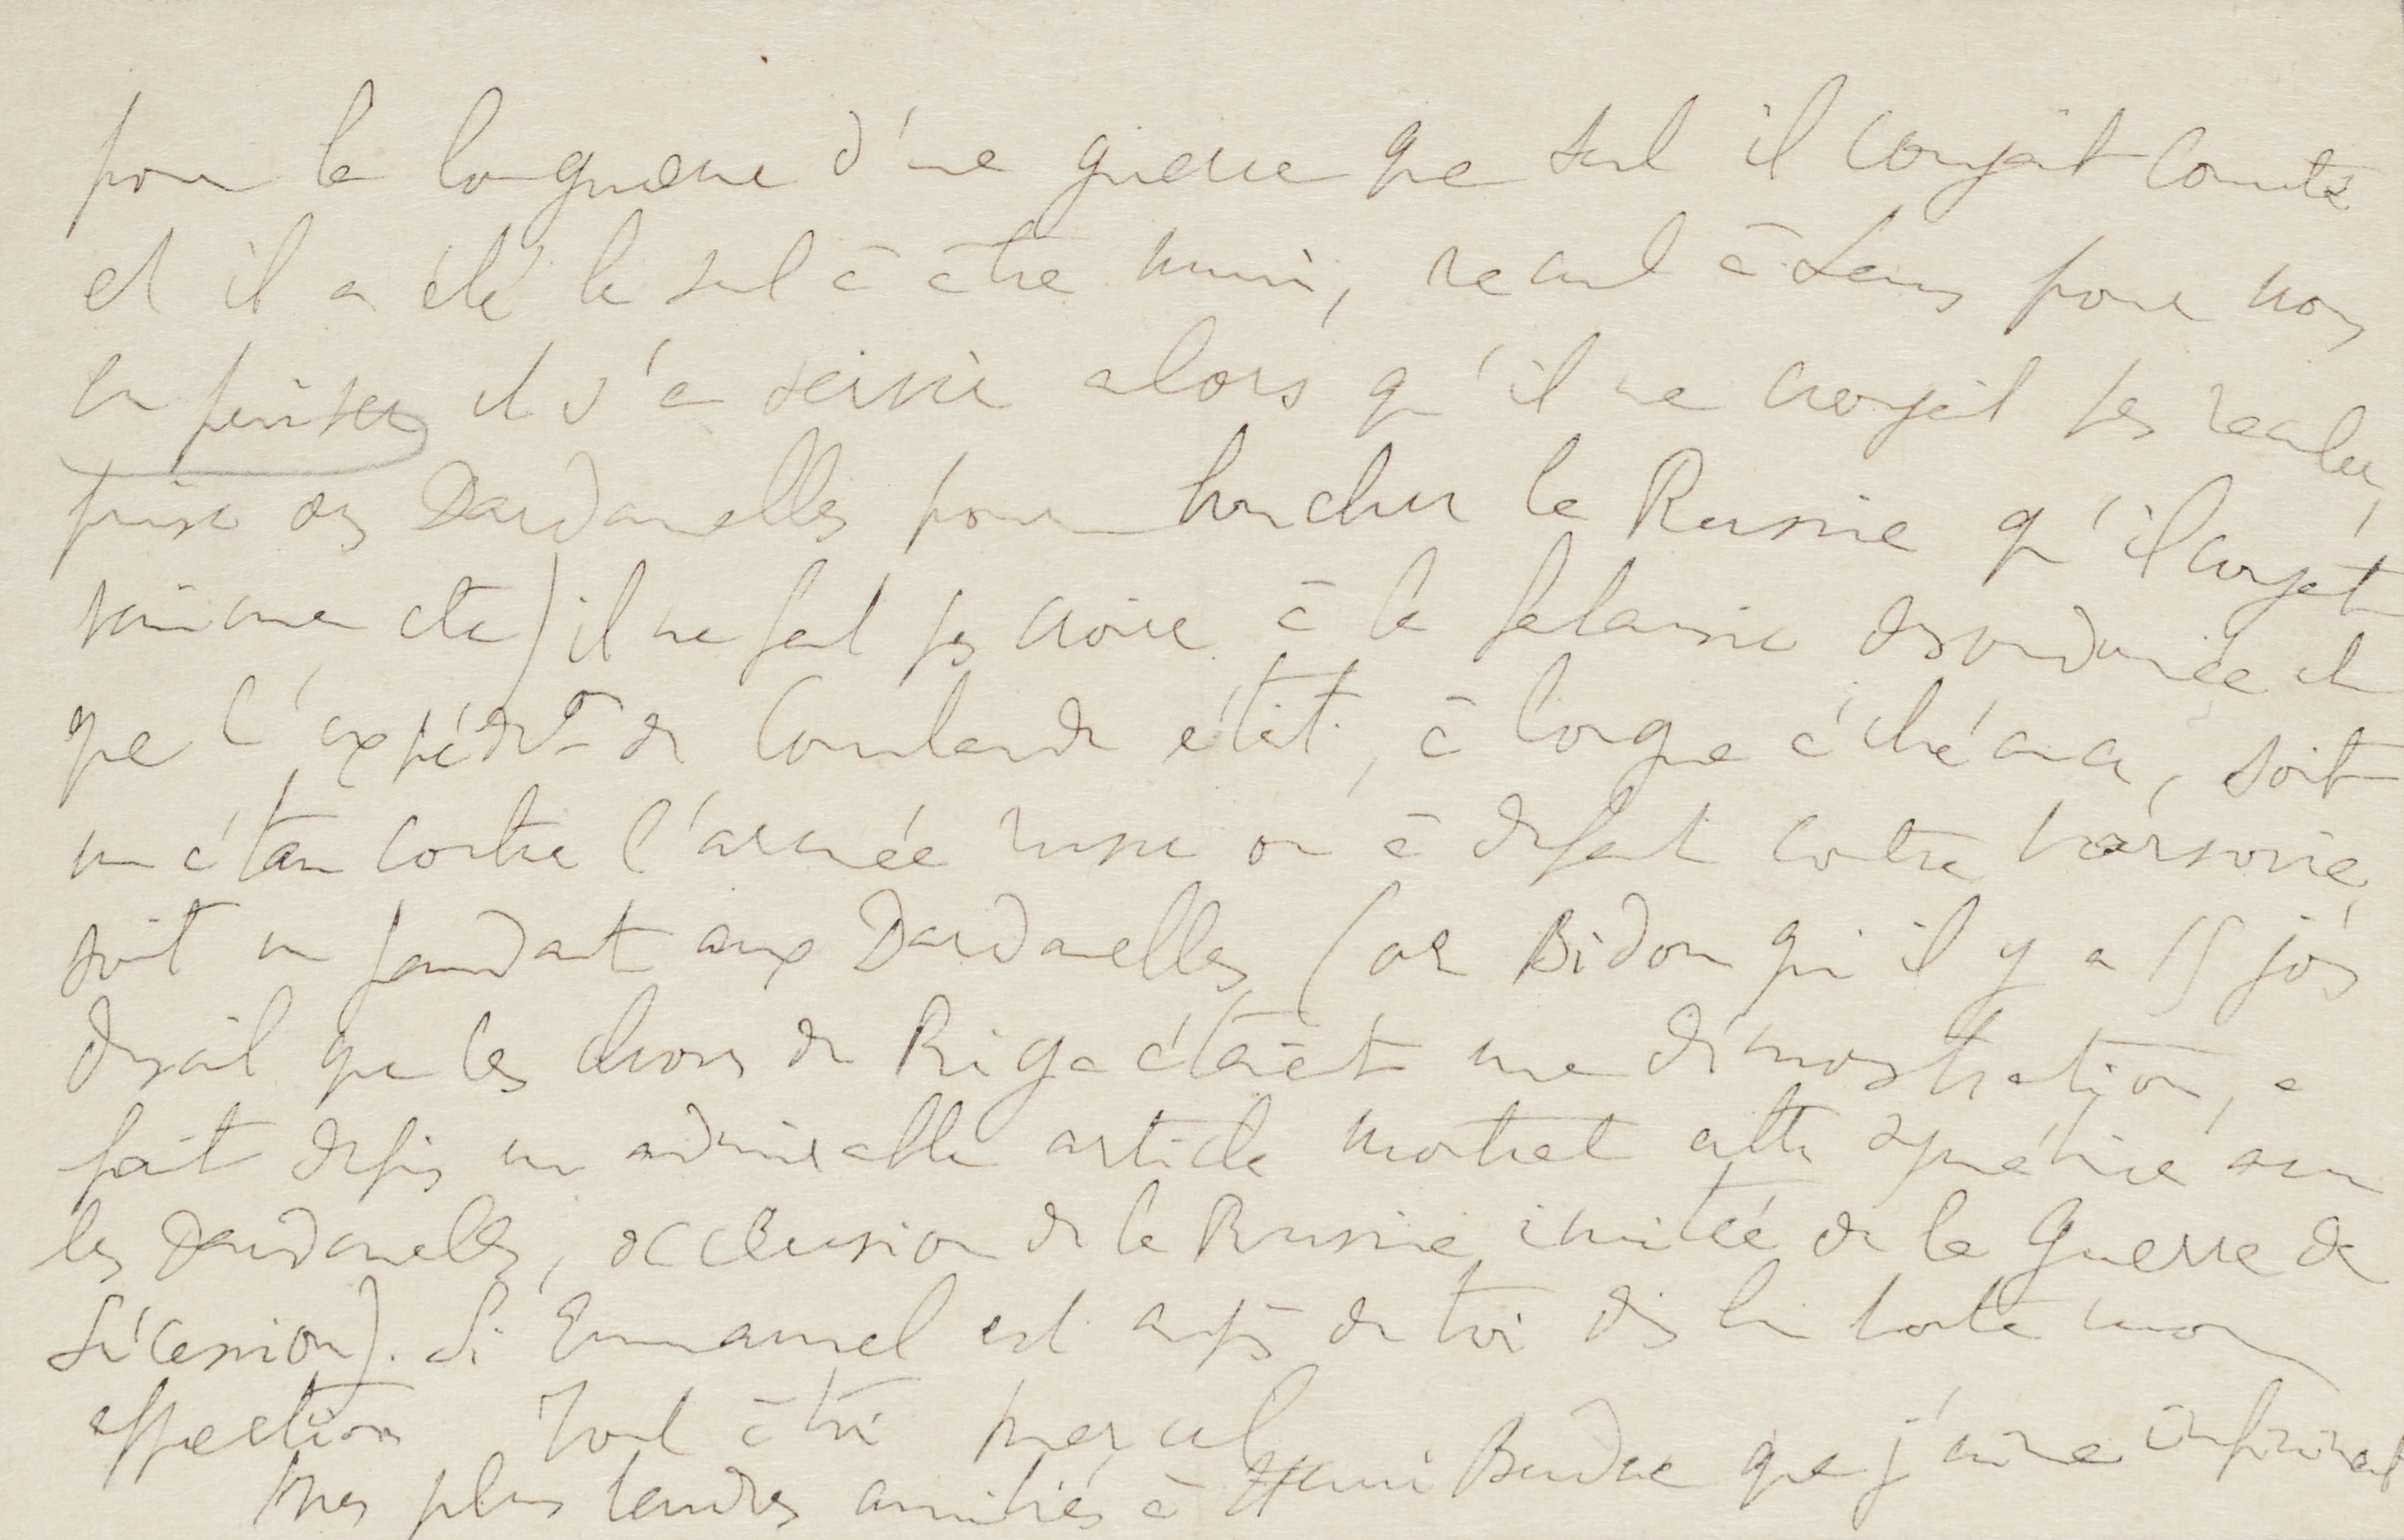 pour la longueur d'une guerre que seul il croyait courte
et il a été le seul à être muni, recul à Lens pour nous
en puiser et s'en servir alors qu'il ne croyait pas reculer,
prise des Dardanelles pour boucher la Russie qu'il croyait
etc) il ne faut pas croire à la fantaisie désordonnée et
que l'expédon de Courlande était, à longue échéance, soit
un étau contre l'armée russe ou à défaut contre Varsovie,
soit un pendant aux Dardanelles (or Bidou qui il y a 15 jos
disait que les choses de Riga étaient une démonstration, a
fait depuis un admirable article montrant cette symétrie avec
les Dardanelles, occlusion de la Russie imitée de la Guerre de
Sécession). Si Emmanuel est auprès de toi dis lui toute mon
affection Tout à toi Marcel
Mes plus tendres amitiés à Henri Bardac que j'aime infiniment